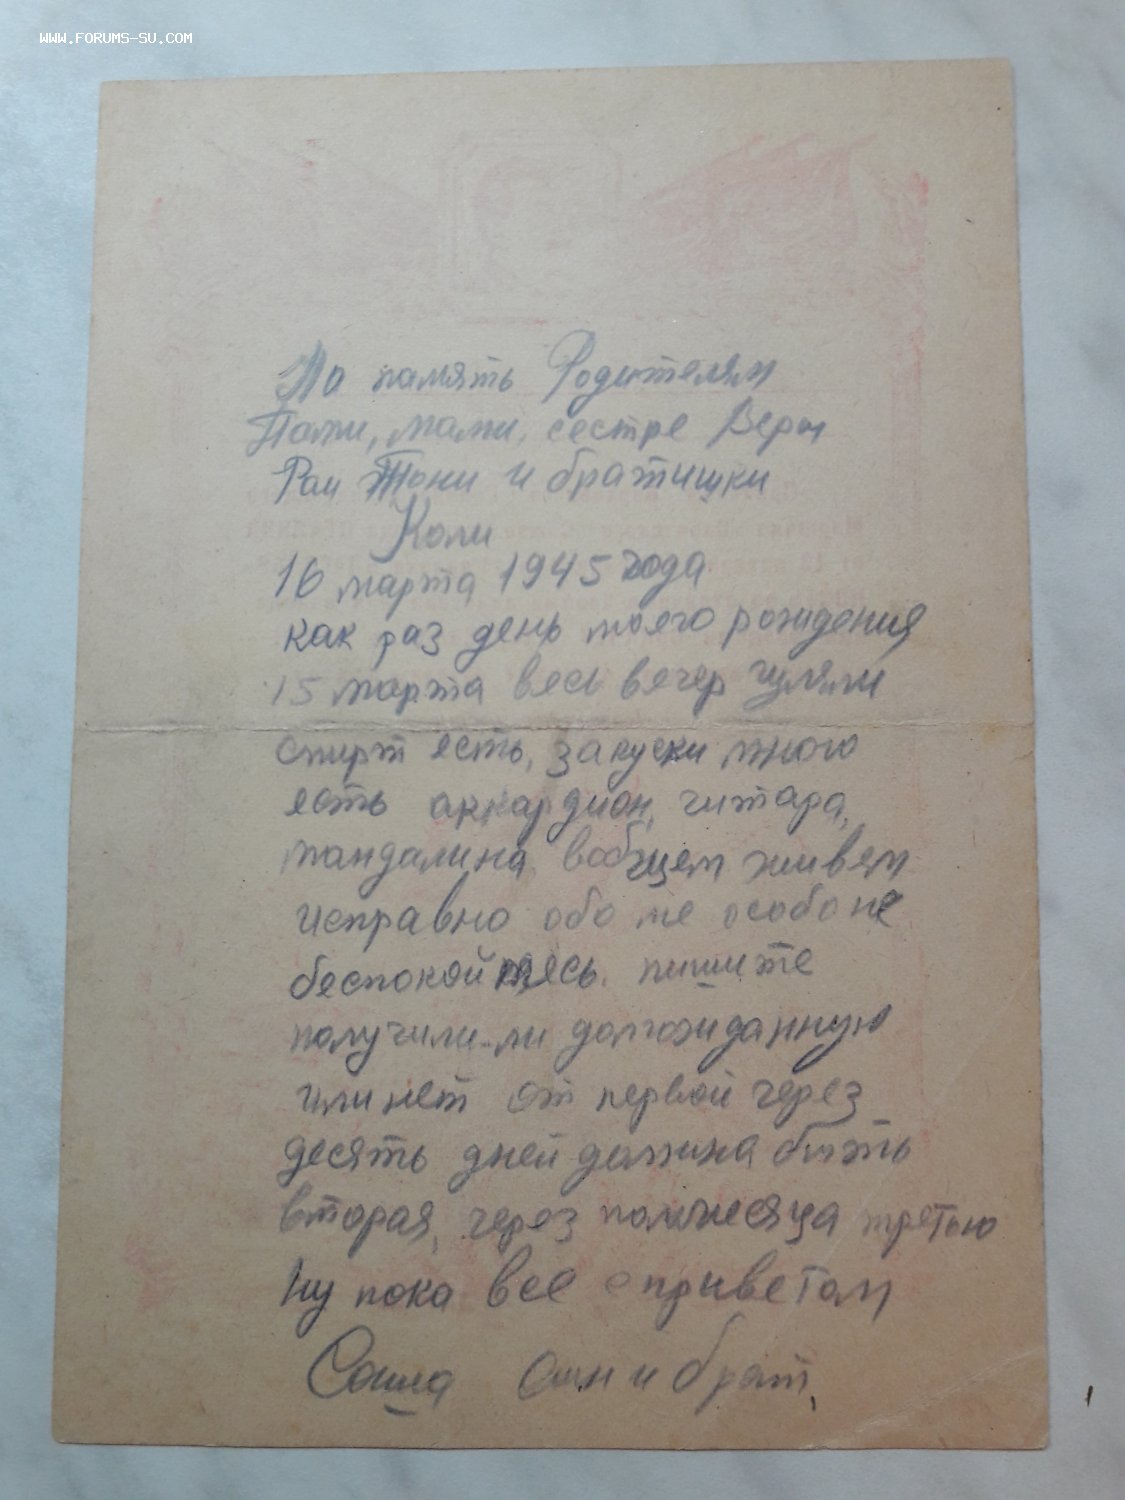 WWW.FORUMS-SU.COM
На память Родителям
Папи, мами, сестре Веры
Раи Тони и братишки
Коли
16 марта 1945 года
как раз день моего рождения
15 марта весь вечер гуляли
спирт есть, закуски много
есть аккардион, гитара,
мандалина, вобщем живем
исправно обо не особо не
беспокойтесь. пишите
получили-ли долгожиданную
или нет от первой через
десять дней должна быть
вторая, через полмесяца третью
Ну пока все с приветом
Саша Сын и брат,